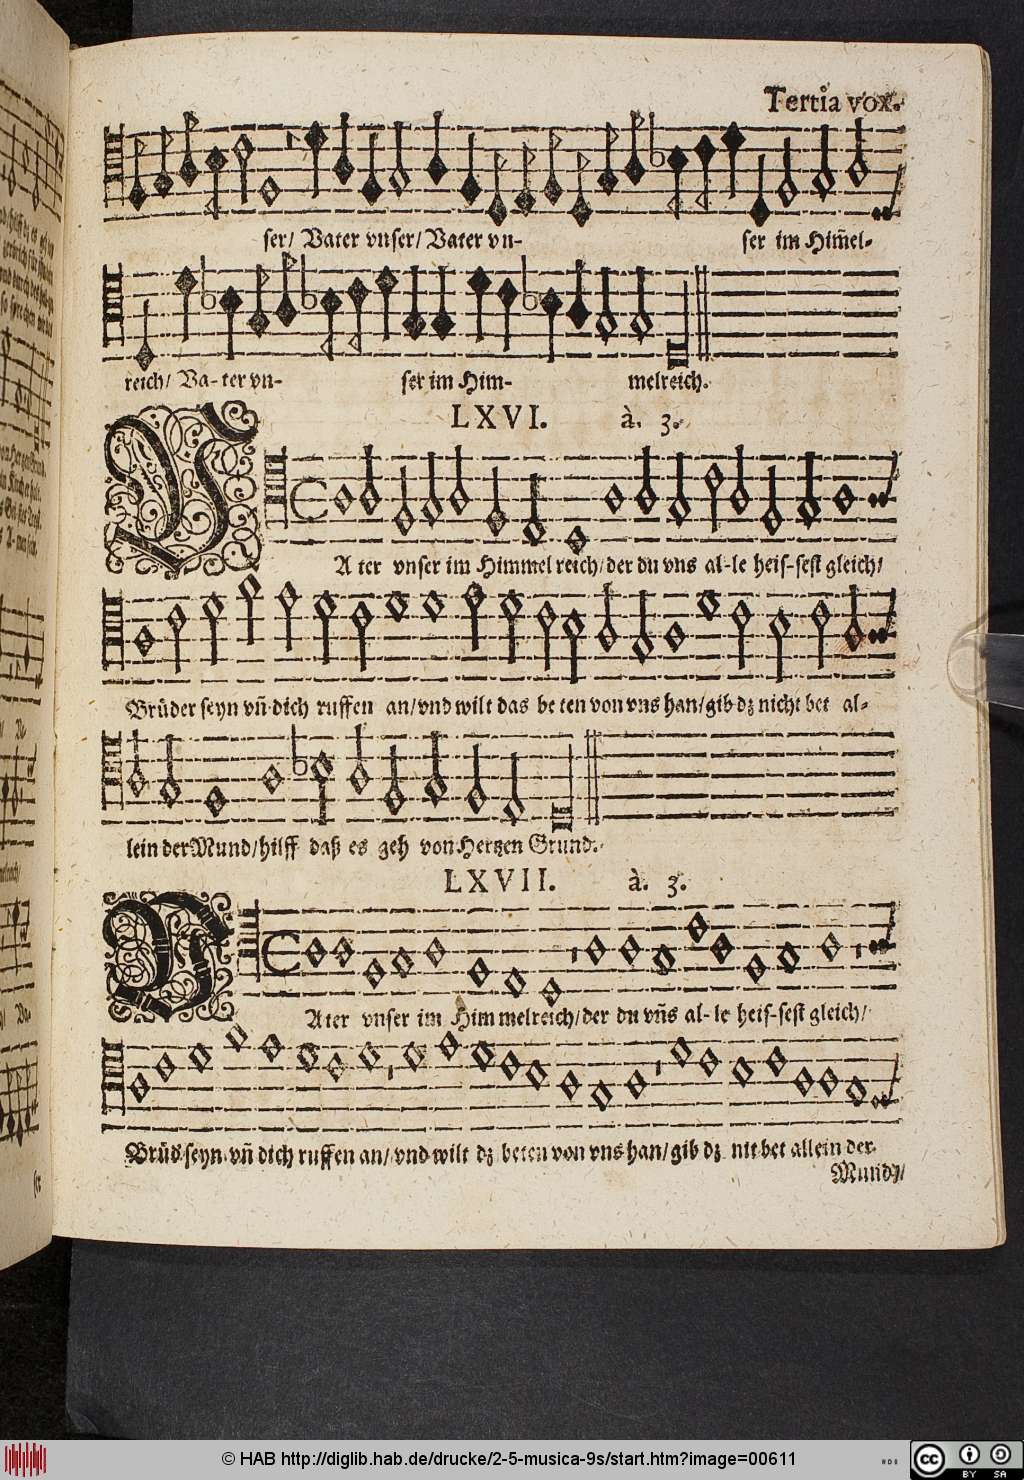 Tertia vox.
ser/ Vater vnser/ Vater vn- ser im Him̃el-
reich/ Va- ter vn- ser im Him- melreich.
LXVI. à. 3.
VAter vnser im Himmel reich/ der du vns al-le heis-sest gleich/
Brüder seyn vñ dich ruffen an/ vnd wilt das be ten von vns han/ gib dz nicht bet al-
lein der Mund/ hilff daß es geh von Hertzen Grund.
LXVII. à. 3.
VAter vnser im Him melreich/ der du vñs al- le heis-sest gleich/
seyn vñ dich ruffen an/ vnd wilt dz beten von vns han/ gib dz nit bet allein der
Mund/
© HAB http://diglib.hab.de/drucke/2-5-musica-9s/start.htm?image=00611
cc
BY SA